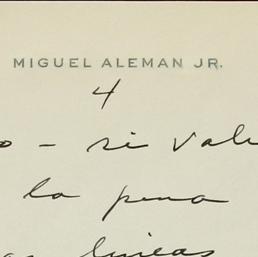 MIGUEL ALEMAN JR.
4
– si
la pena
lineas